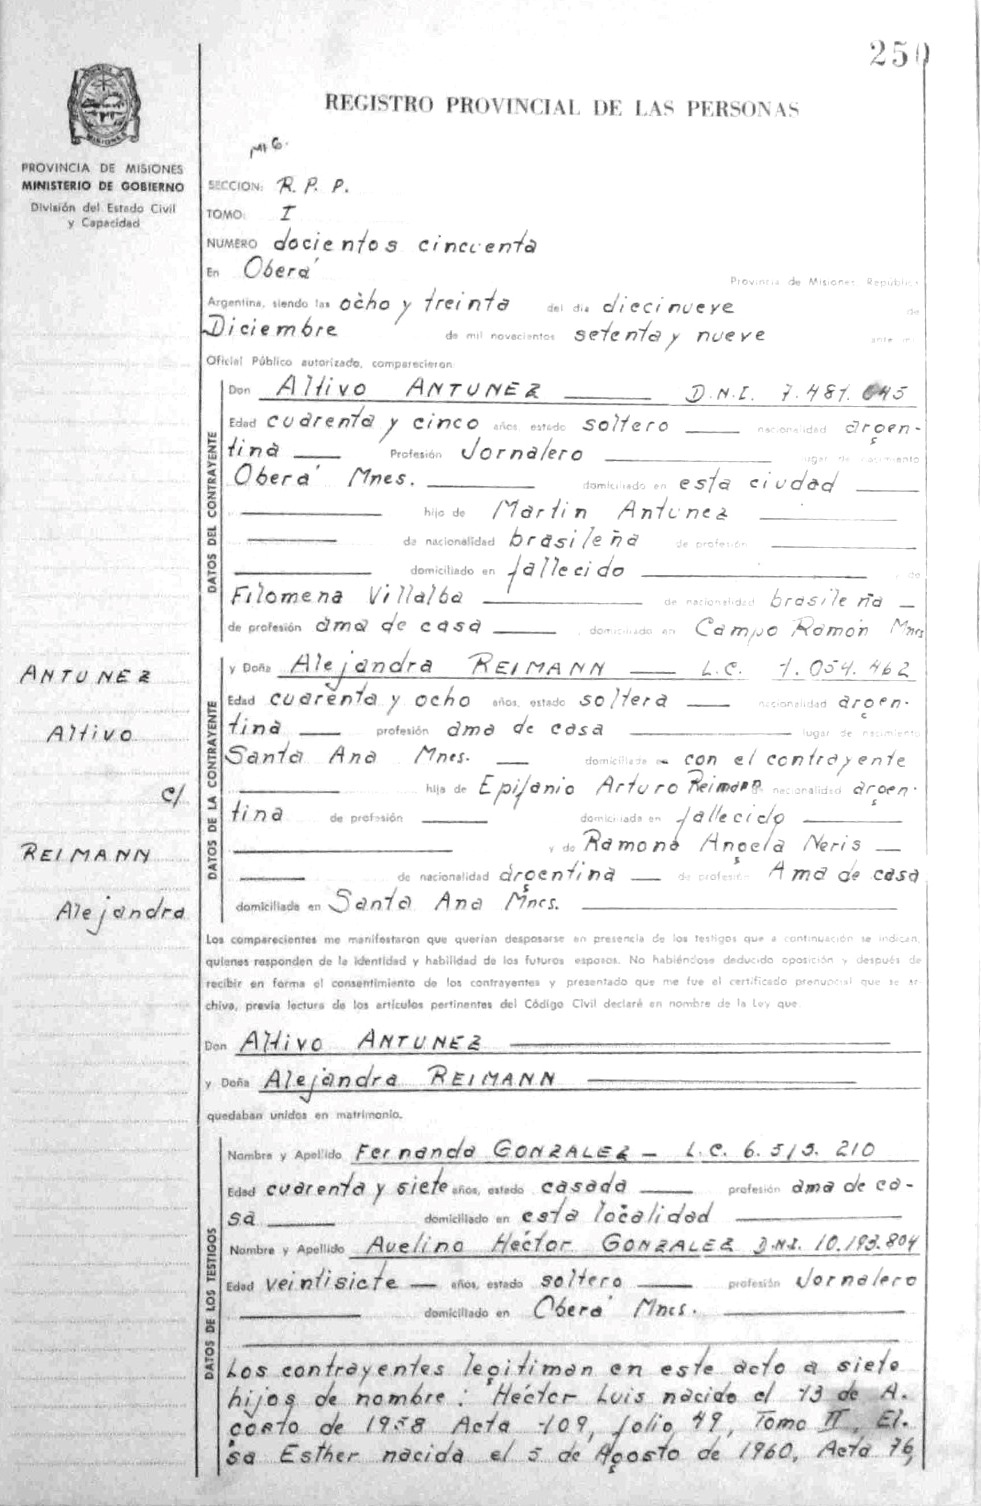 250
REGISTRO PROVINCIAL DE LAS PERSONAS
MISIONES
PROVINCIA DE MISIONES
MINISTERIO DE GOBIERNO
División del Estado Civil
y Capacidad
SECCION: R. P. P.
TOMO: I
NUMERO docientos cincuenta
En Oberá Provincia de Misiones, República
Argentina, siendo las ocho y treinta del día diecinueve de
Diciembre de mil novecientos setenta y nueve ante mí
Oficial Público autorizado, comparecieron
DATOS DEL CONTRAYENTE
Don Altivo ANTUNEZ D.N.I. 7.481.645
Edad cuarenta y cinco años, estado soltero nacionalidad argen-
tina Profesión Jornalero lugar de nacimiento
Oberá Mnes. domiciliado en esta ciudad
hijo de Martin Antunez
de nacionalidad brasileña de profesión
domiciliado en fallecido de
Filomena Villalba de nacionalidad brasileña
de profesión ama de casa domiciliado en Campo Ramón Mnes
DATOS DE LA CONTRAYENTE
y Doña Alejandra REIMANN L.C. 1.054.462
Edad cuarenta y ocho años, estado soltera nacionalidad argen-
tina profesión ama de casa lugar de nacimiento
Santa Ana Mnes. domiciliada en con el contrayente
hija de Epifanio Arturo Reimann nacionalidad argen-
tina de profesión domiciliada en fallecido
y de Ramona Angela Neris
de nacionalidad argentina de profesión Ama de casa
domiciliada en Santa Ana Mnes.
ANTUNEZ
Altivo
c/
REIMANN
Alejandra
Los comparecientes me manifestaron que querían desposarse en presencia de los testigos que a continuación se indican,
quienes responden de la identidad y habilidad de los futuros esposos. No habiéndose deducido oposición y después de
recibir en forma el consentimiento de los contrayentes y presentado que me fue el certificado prenupcial que se ar-
chiva, previa lectura de los artículos pertinentes del Código Civil declaré en nombre de la Ley que:
Don Altivo ANTUNEZ
y Doña Alejandra REIMANN
quedaban unidos en matrimonio.
DATOS DE LOS TESTIGOS
Nombre y Apellido Fernanda GONZALEZ - L.C. 6.515.210
Edad cuarenta y siete años, estado casada profesión ama de ca-
sa domiciliado en esta localidad
Nombre y Apellido Avelino Héctor GONZALEZ D.N.I. 10.193.804
Edad veintisiete años, estado soltero profesión Jornalero
domiciliado en Oberá Mnes.
Los contrayentes legitiman en este acto a siete
hijos de nombre: Héctor Luis nacido el 13 de A.
gosto de 1958 Acta 109, folio 49, Tomo II, El.
sa Esther nacida el 5 de Agosto de 1960, Acta 76,